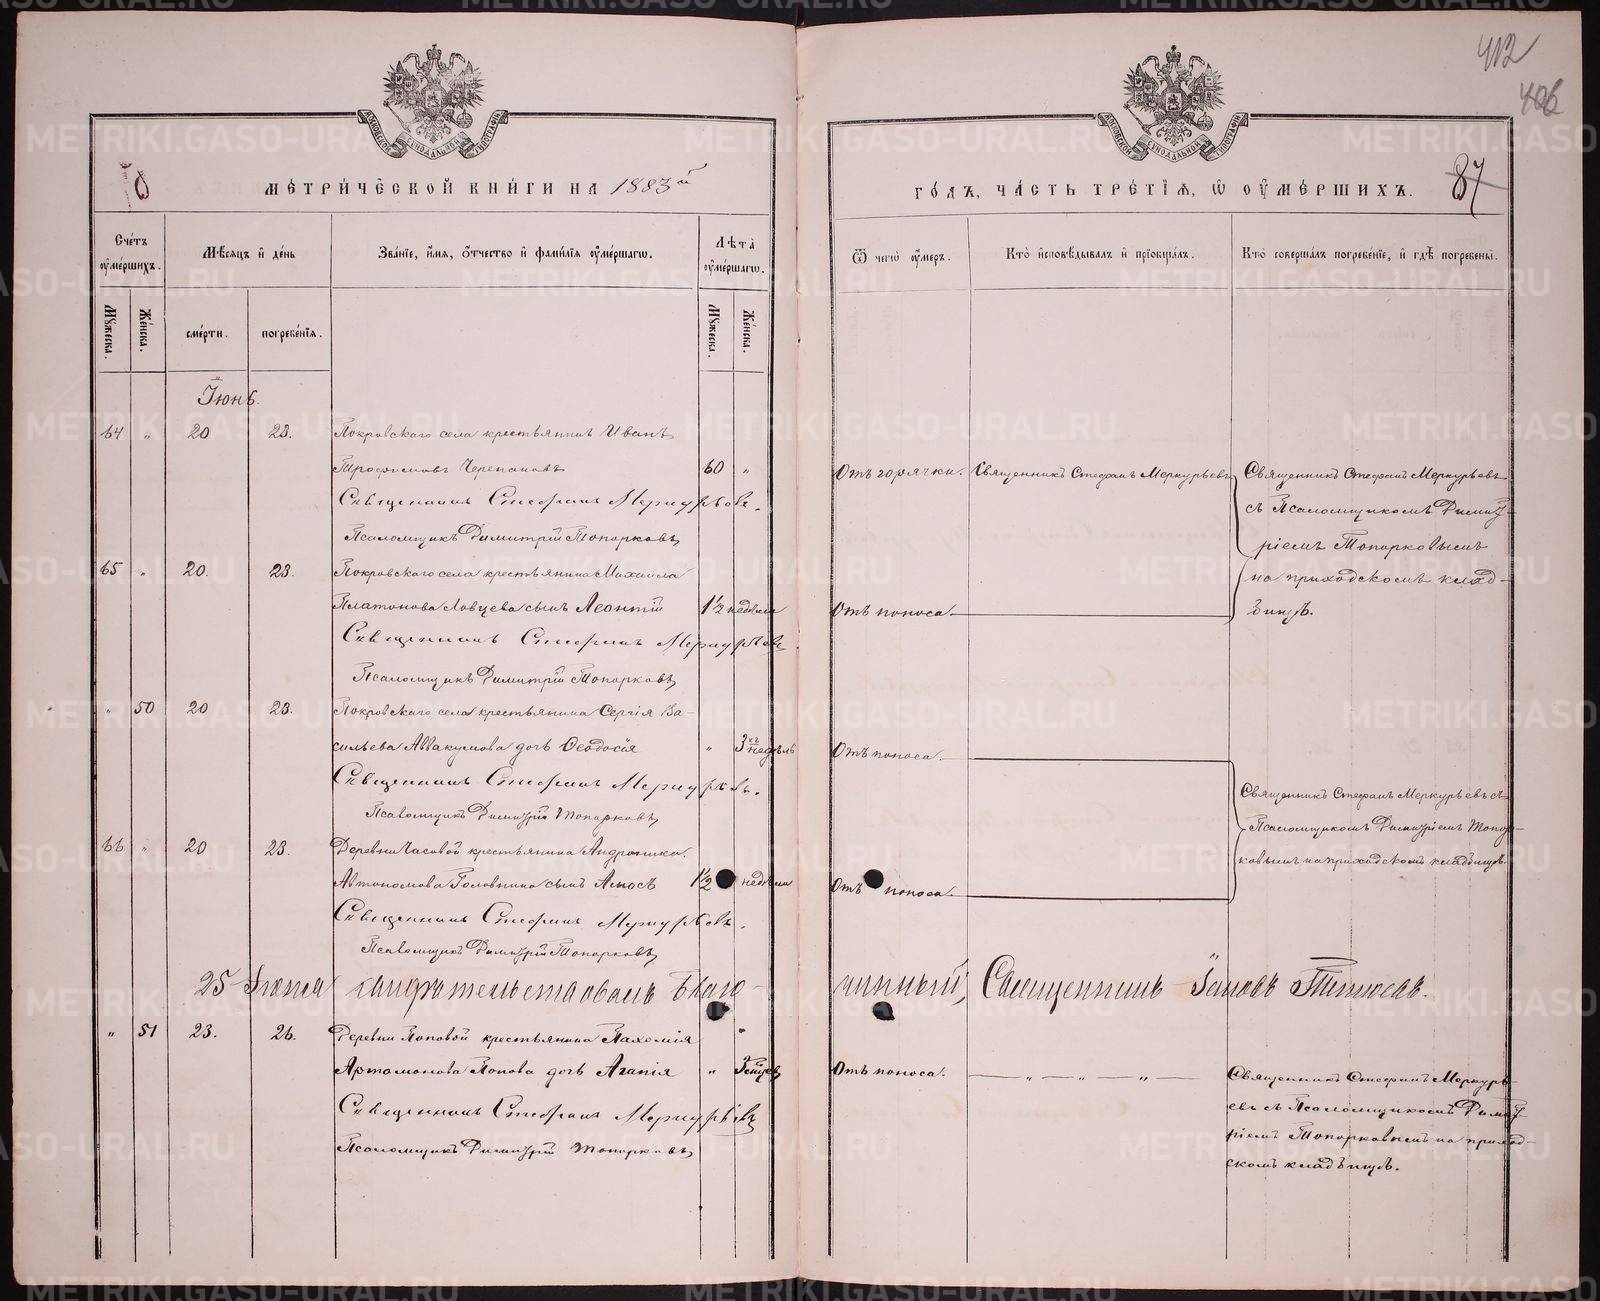 412
406
87
МЕТРИЧЕСКОЙ КНИГИ НА 1883й
ГОДЪ, ЧАСТЬ ТРЕТІЯ, Ѿ ОУМЕРШИХЪ.
Счетъ оумершихъ.
Мѣсяцъ и день
Званіе, имя, отчество и фамилія оумершагѡ.
Лѣта оумершагѡ.
Ѿ чегѡ оумеръ.
Кто исповѣдывалъ и пріобщалъ.
Кто совершалъ погребеніе, и гдѣ погребены.
Мужеска.
Женска.
смерти.
погребенія.
Мужеска.
Женска.
Іюнь.
64 „ 20 23. Покровскаго села крестьянинъ Иванъ
Трофимовъ Черепановъ 60 „ Отъ горячки. Священникъ Стефанъ Меркурьевъ Священникъ Стефанъ Меркурьевъ
Священникъ Стефанъ Меркурьевъ. съ Псаломщикомъ Димит-
Псаломщикъ Димитрій Топорковъ ріемъ Топорковымъ
65 „ 20. 23. Покровскаго села крестьянина Михаила на приходскомъ клад-
Платонова Ловцева сынъ Леонтій 1½ недѣли Отъ поноса. бищѣ.
Священникъ Стефанъ Меркурьевъ
Псаломщикъ Димитрій Топорковъ
„ 50 20 23. Покровскаго села крестьянина Сергія Ва-
сильева Аввакумова дочь Ѳеодосія „ 3хъ недѣль Отъ поноса.
Священникъ Стефанъ Меркурьевъ. Священникъ Стефанъ Меркурьевъ съ
Псаломщикъ Димитрій Топорковъ Псаломщикомъ Димитріемъ Топор-
66 „ 20 23. Деревни Часовой крестьянина Андроника ковымъ на приходскомъ кладбищѣ.
Автономова Головнина сынъ Амосъ 1½ недѣли Отъ поноса.
Священникъ Стефанъ Меркурьевъ.
Псаломщикъ Димитрій Топорковъ
25 Іюня свидѣтельствовалъ Благо-
чинный, Священникъ
„ 51 23. 26. Деревни Поповой крестьянина Пахомія
Артамонова Попова дочь Агапія „ Отъ поноса. — „ — „ — „ — Священникъ Стефанъ Меркурь-
Священникъ Стефанъ Меркурьевъ евъ съ Псаломщикомъ Димит-
Псаломщикъ Димитрій Топорковъ ріемъ Топорковымъ на приход-
скомъ кладбищѣ.
METRIKI.GASO-URAL.RU